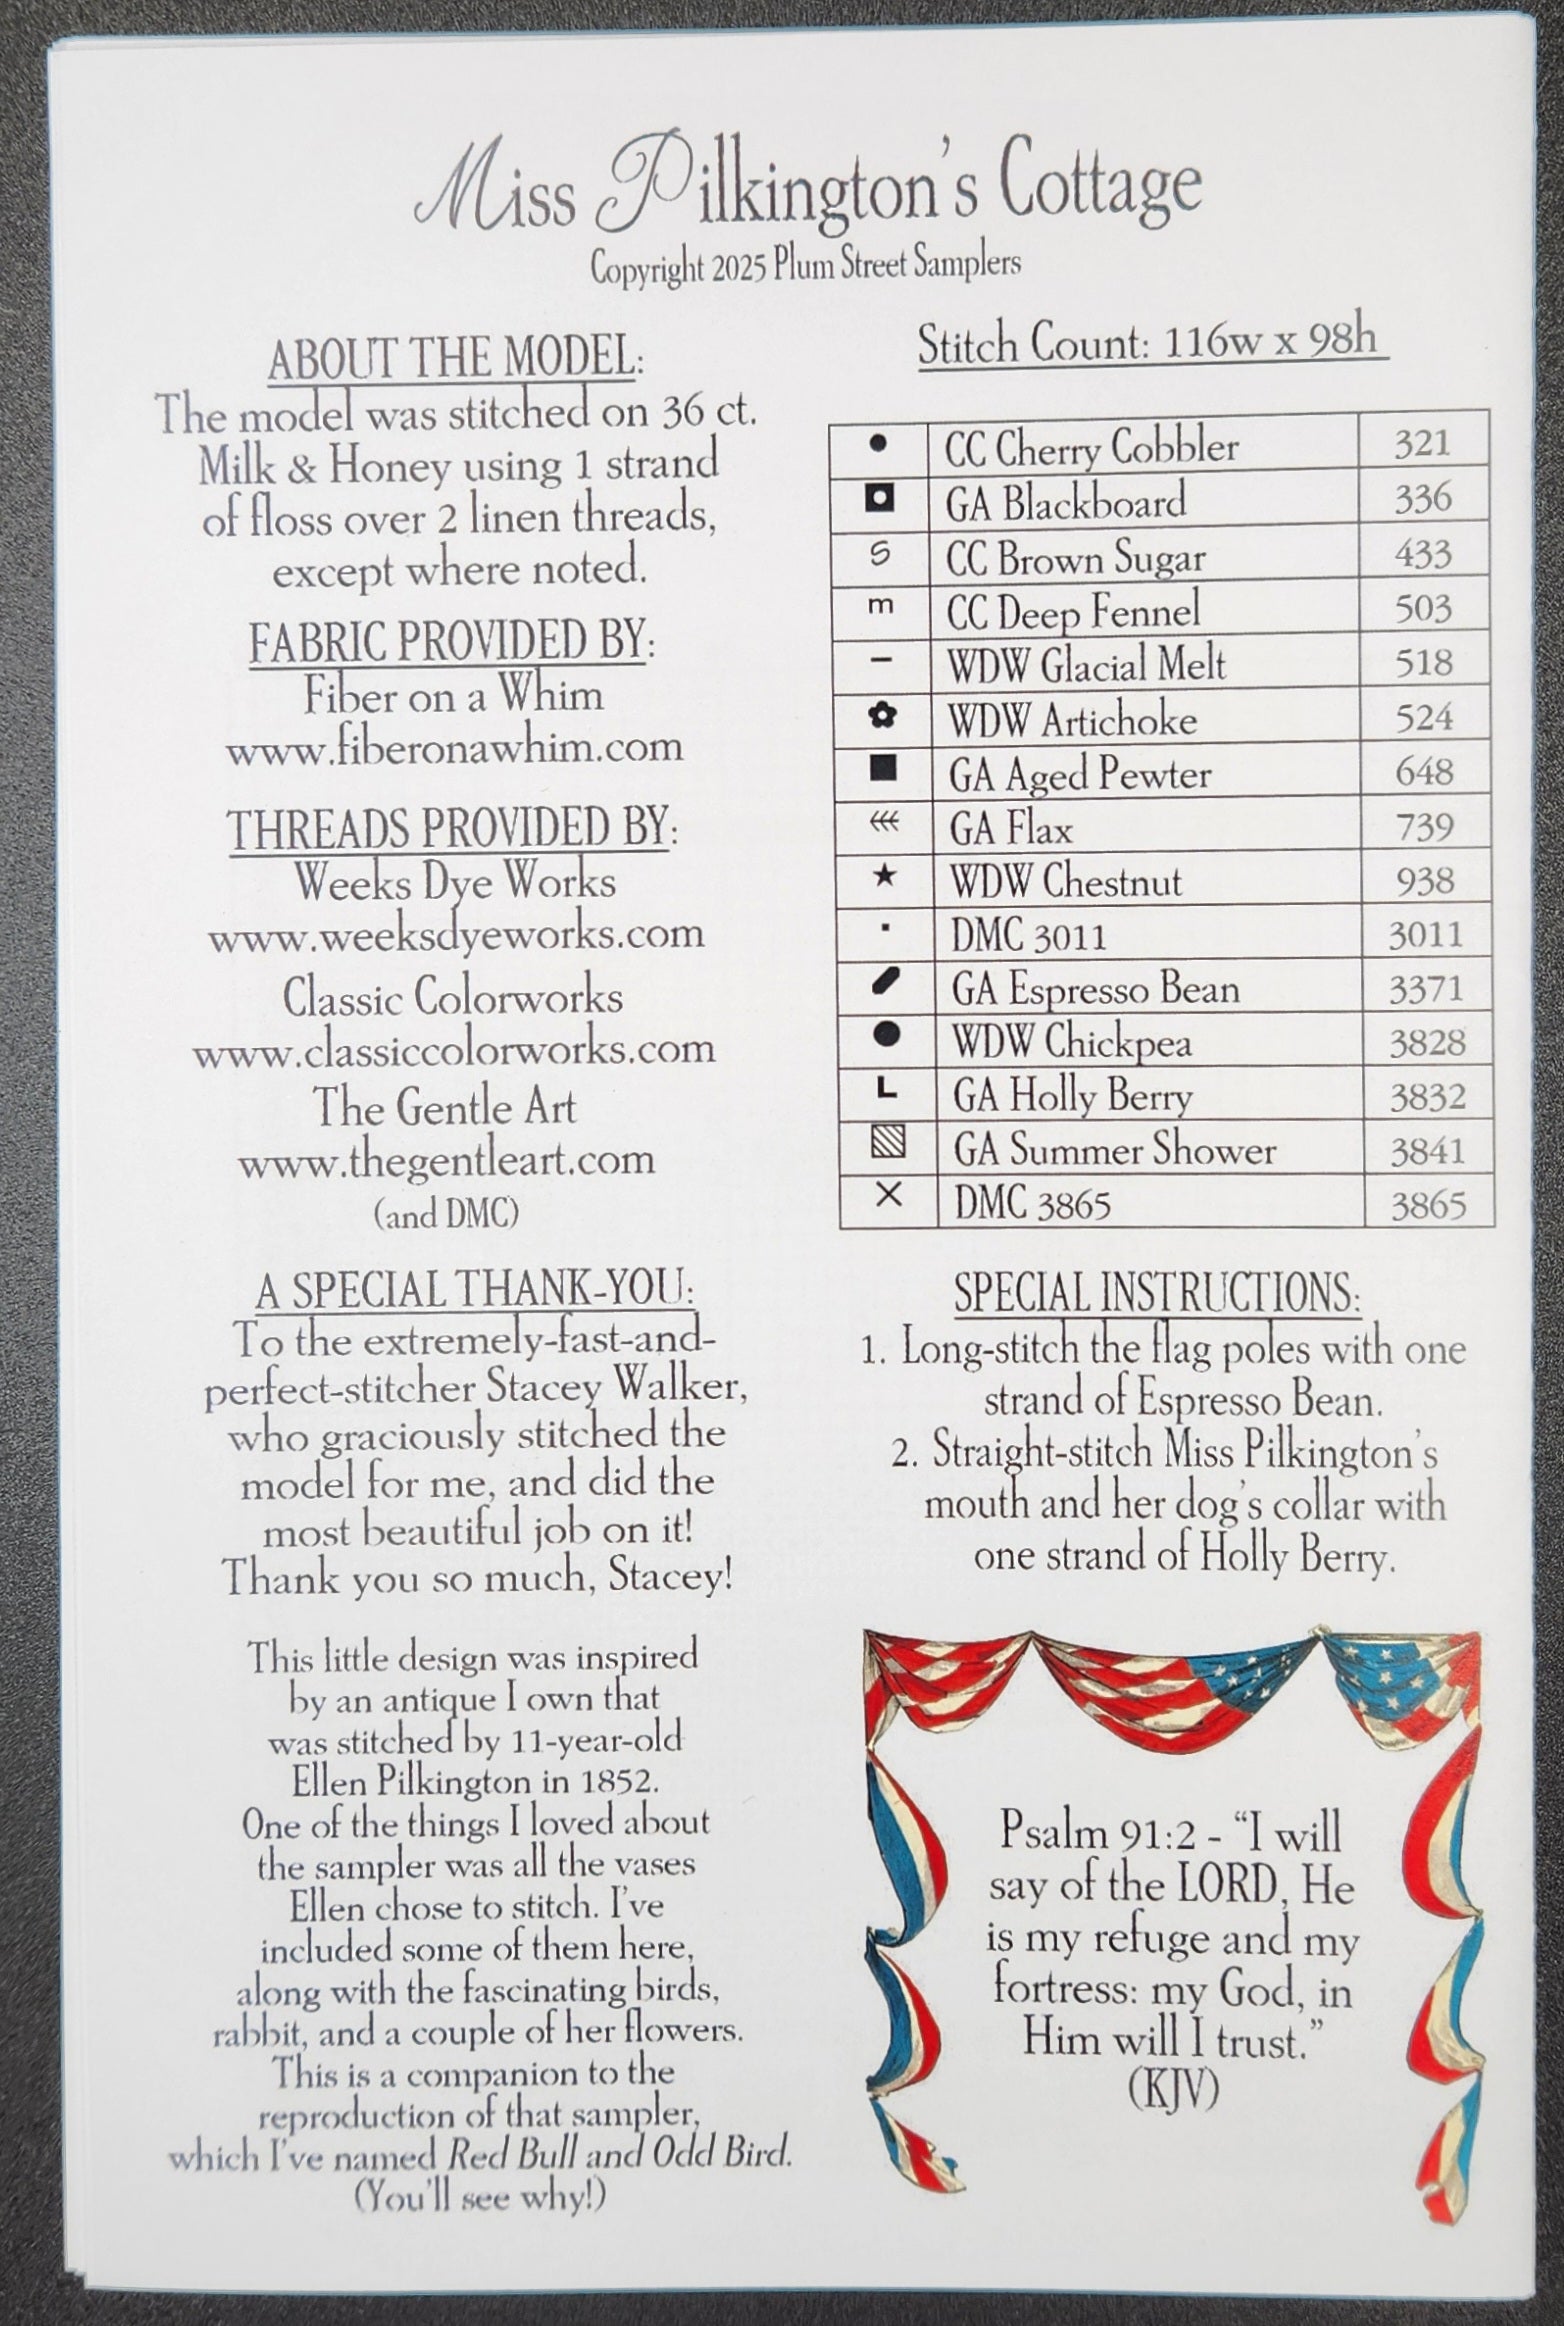 Miss Pilkington's Cottage
Copyright 2025 Plum Street Samplers
ABOUT THE MODEL:
The model was stitched on 36 ct.
Milk & Honey using 1 strand
of floss over 2 linen threads,
except where noted.
FABRIC PROVIDED BY:
Fiber on a Whim
www.fiberonawhim.com
THREADS PROVIDED BY:
Weeks Dye Works
www.weeksdyeworks.com
Classic Colorworks
www.classiccolorworks.com
The Gentle Art
www.thegentleart.com
(and DMC)
A SPECIAL THANK-YOU:
To the extremely-fast-and-
perfect-stitcher Stacey Walker,
who graciously stitched the
model for me, and did the
most beautiful job on it!
Thank you so much, Stacey!
This little design was inspired
by an antique I own that
was stitched by 11-year-old
Ellen Pilkington in 1852.
One of the things I loved about
the sampler was all the vases
Ellen chose to stitch. I've
included some of them here,
along with the fascinating birds,
rabbit, and a couple of her flowers.
This is a companion to the
reproduction of that sampler,
which I've named Red Bull and Odd Bird.
(You'll see why!)
Stitch Count: 116w x 98h
● CC Cherry Cobbler 321
◘ GA Blackboard 336
S CC Brown Sugar 433
m CC Deep Fennel 503
– WDW Glacial Melt 518
✿ WDW Artichoke 524
■ GA Aged Pewter 648
GA Flax 739
★ WDW Chestnut 938
▪ DMC 3011 3011
GA Espresso Bean 3371
● WDW Chickpea 3828
L GA Holly Berry 3832
▧ GA Summer Shower 3841
× DMC 3865 3865
SPECIAL INSTRUCTIONS:
1. Long-stitch the flag poles with one
strand of Espresso Bean.
2. Straight-stitch Miss Pilkington's
mouth and her dog's collar with
one strand of Holly Berry.
Psalm 91:2 - “I will
say of the LORD, He
is my refuge and my
fortress: my God, in
Him will I trust.”
(KJV)